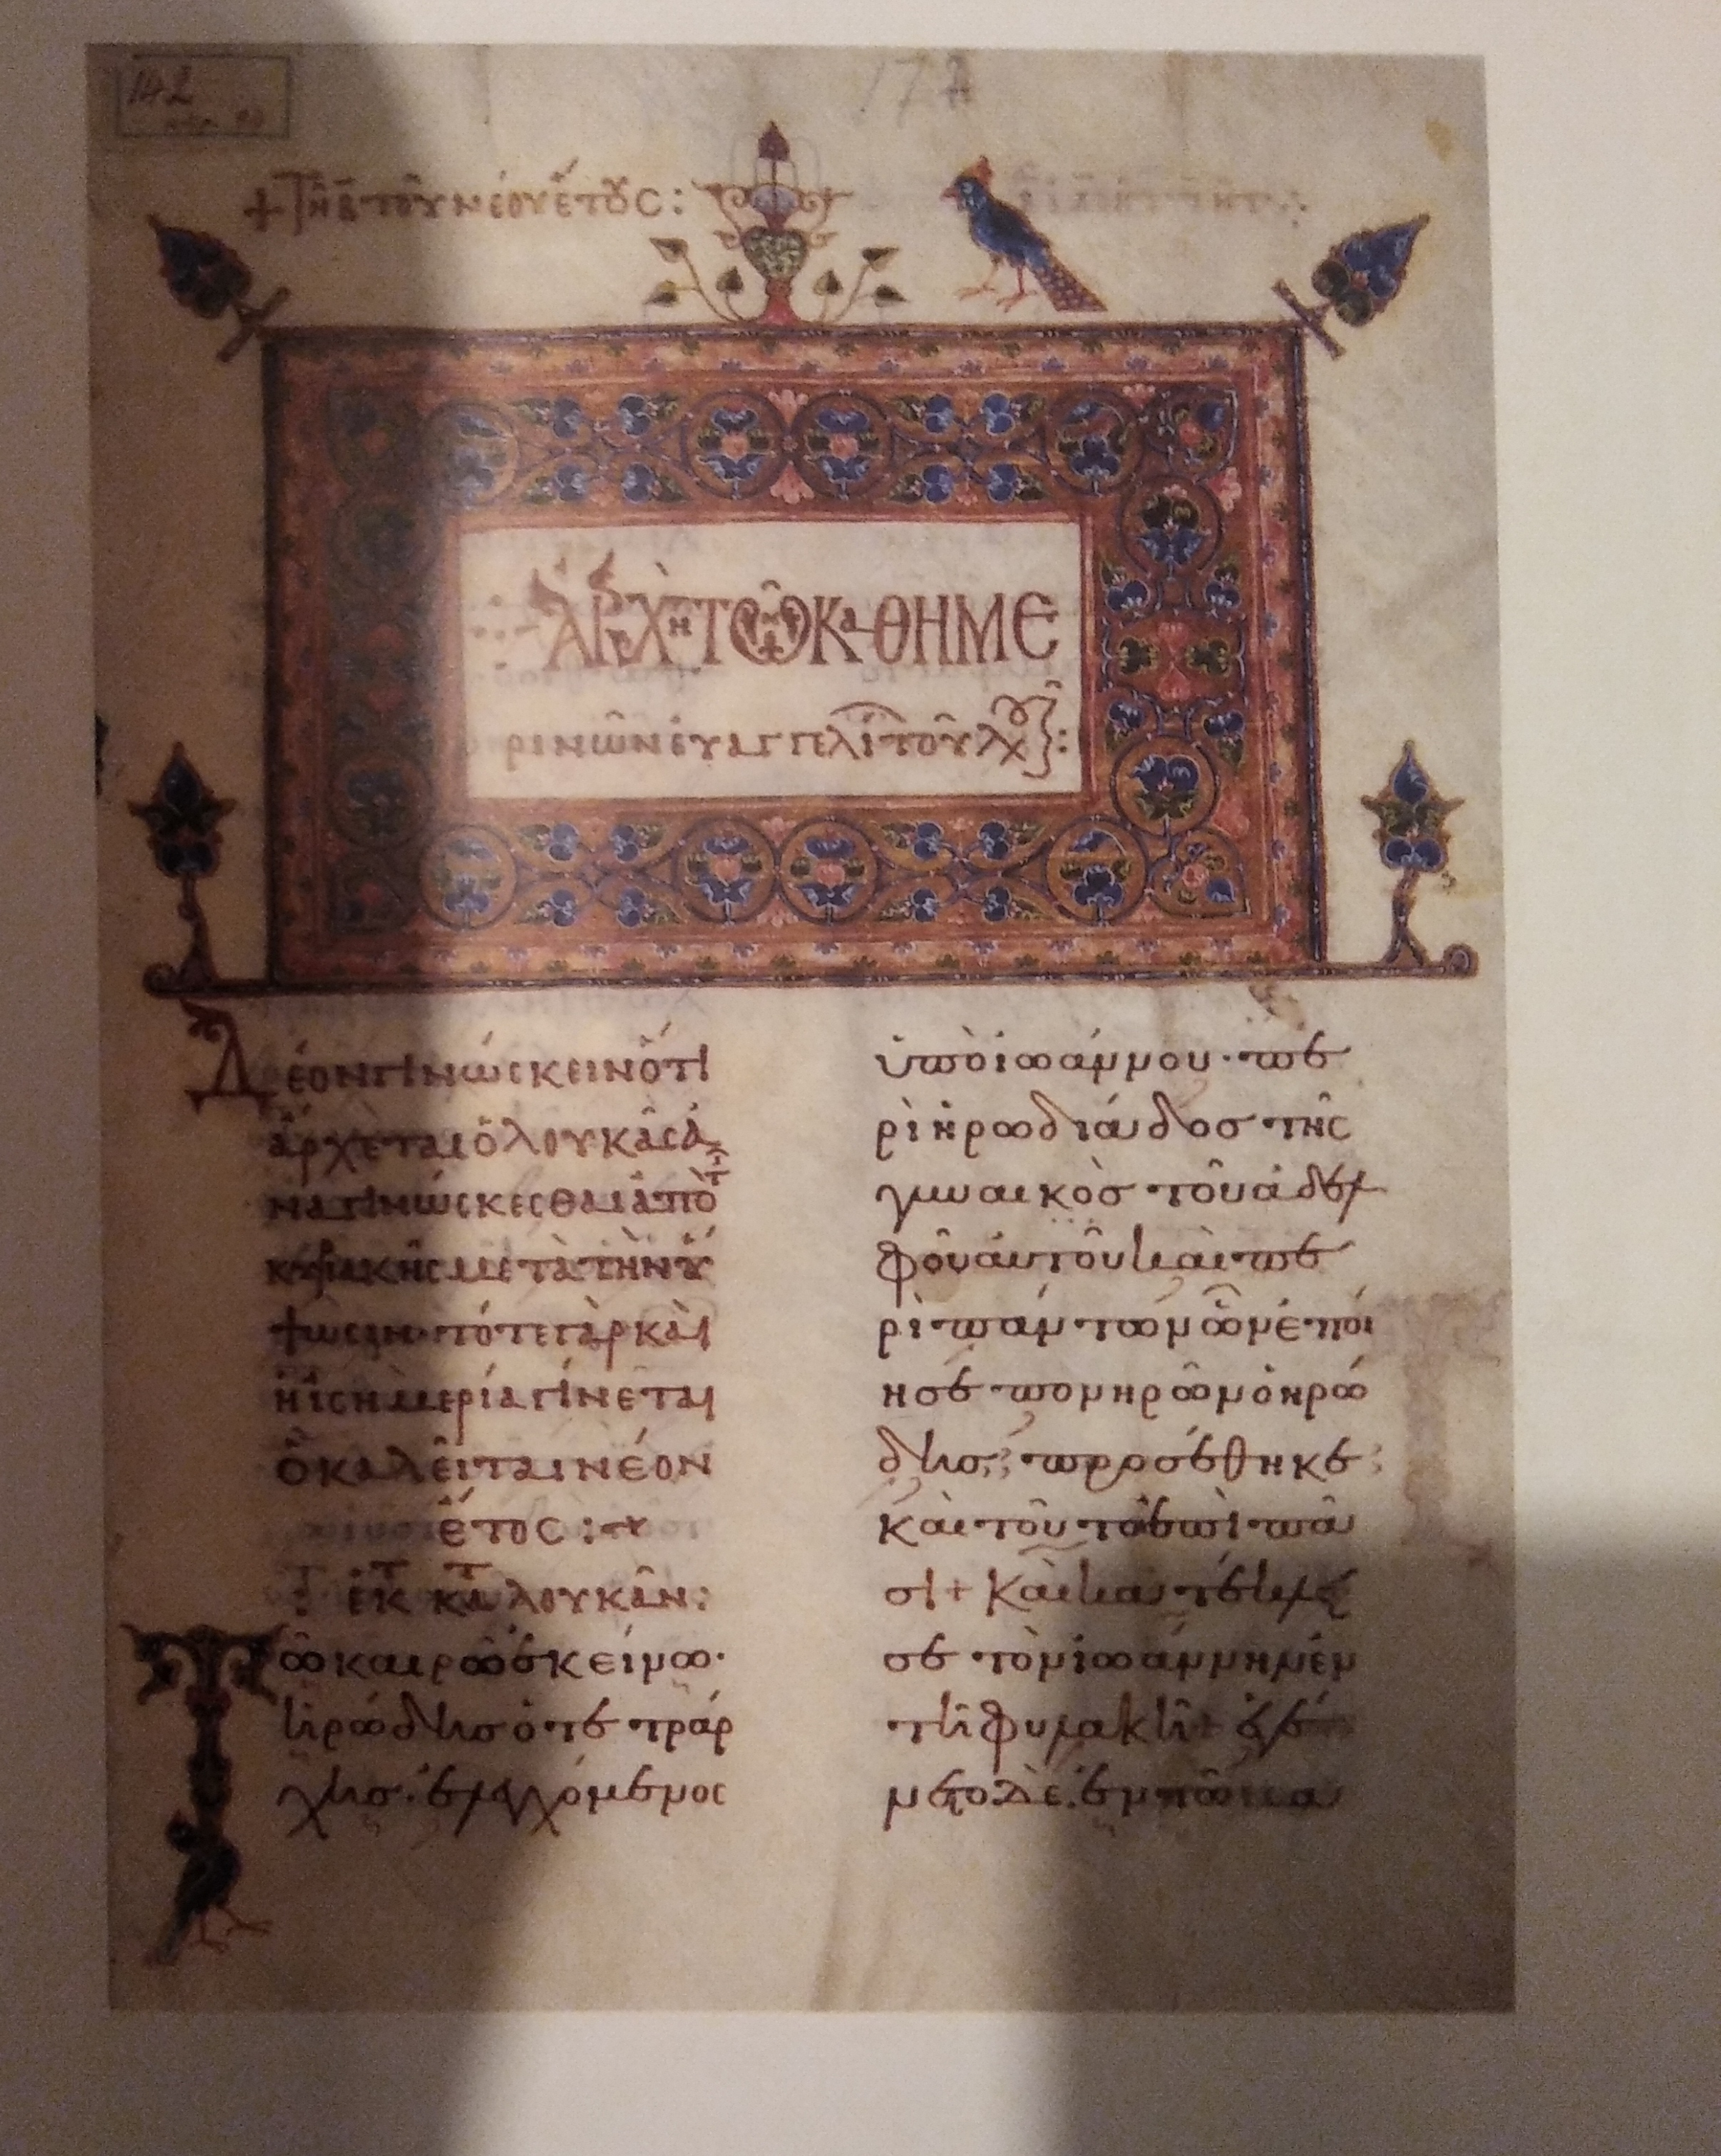 142
17
+ Τῆ β τοῦ νέου ἔτους:
ἈΡΧῊ ΤΩ͂Ν ΚΑΘΗΜΕ
ρινῶν εὐαγγελί τοῦ λ
Δέον γινώσκειν ὅτι
ἄρχεται ὁ λουκᾶς ἀ
ναγινώσκεσθαι ἀπὸ τ
κυριακῆς μετὰ τὴν ὕ
ψωσιν· τότε γὰρ καὶ
ἡ ἰσημερία γίνεται
ὃ καλεῖται νέον
ἔτος :
ἐκ τ κατ λουκᾶν:
Τῶ καιρῶ ἐκείνω·
ἡρώδης ὁ τετράρ
χης· ἐλεγχόμενος
ὑπὸ ἰωάννου· πε
ρὶ ἡρωδιάδος τῆς
γυναικὸς τοῦ ἀδελ
φοῦ αὐτοῦ καὶ πε
ρὶ πάντων ὧν ἐποί
ησε πονηρῶν ὁ ἡρώ
δης; προσέθηκε
καὶ τοῦτο ἐπὶ πᾶ
σι + καὶ κατέκλει
σε τὸν ἰωάννην ἐν
τῆ φυλακῆ + ἐγέ
νετο δὲ ἐν τῶ κα